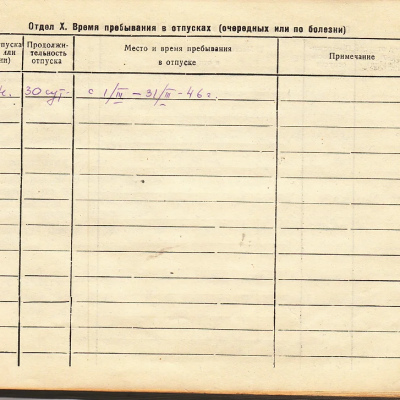 Отдел X. Время пребывания в отпусках (очередных или по болезни)
пуска
или
ни)
Продолжи-
тельность
отпуска
Место и время пребывания
в отпуске
Примечание
30 сут. с 1/III – 31/III – 46 г.